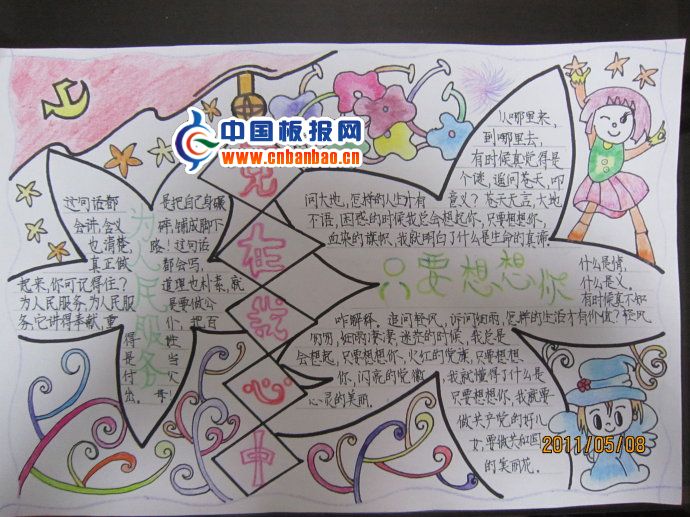 中国板报网
www.cnbanbao.cn
党在我心中
为人民服务
这句话都
会讲,含义
也清楚,
真正做
起来,你可记得住?
为人民服务,为人民服
务,它讲得奉献,重
得
是
付
出。
是把自己身躯
碎,铺成脚下
路!这句话
都会写,
道理也朴素,就
是要做公
仆,把百
姓
当
父
母!
只要想想你
从哪里来,
到哪里去,
有时候真觉得是
个谜,追问苍天,叩
问大地,怎样的人生才有意义?苍天无言,大地
不语,困惑的时候我总会想起你,只要想想你,
血染的旗帜,我就明白了什么是生命的真谛
什么是情,
什么是义。
有时候真不知
咋解释。追问轻风,诉问细雨,怎样的生活才有价值?轻风
细雨蒙蒙,迷茫的时候,我总是
会想起,只要想想你,火红的党旗,只要想想
你,闪亮的党徽,我就懂得了什么是
心灵的美丽。只要想想你,我就要
做共产党的好儿
女,要做共和国
的美丽花。
2011/05/08